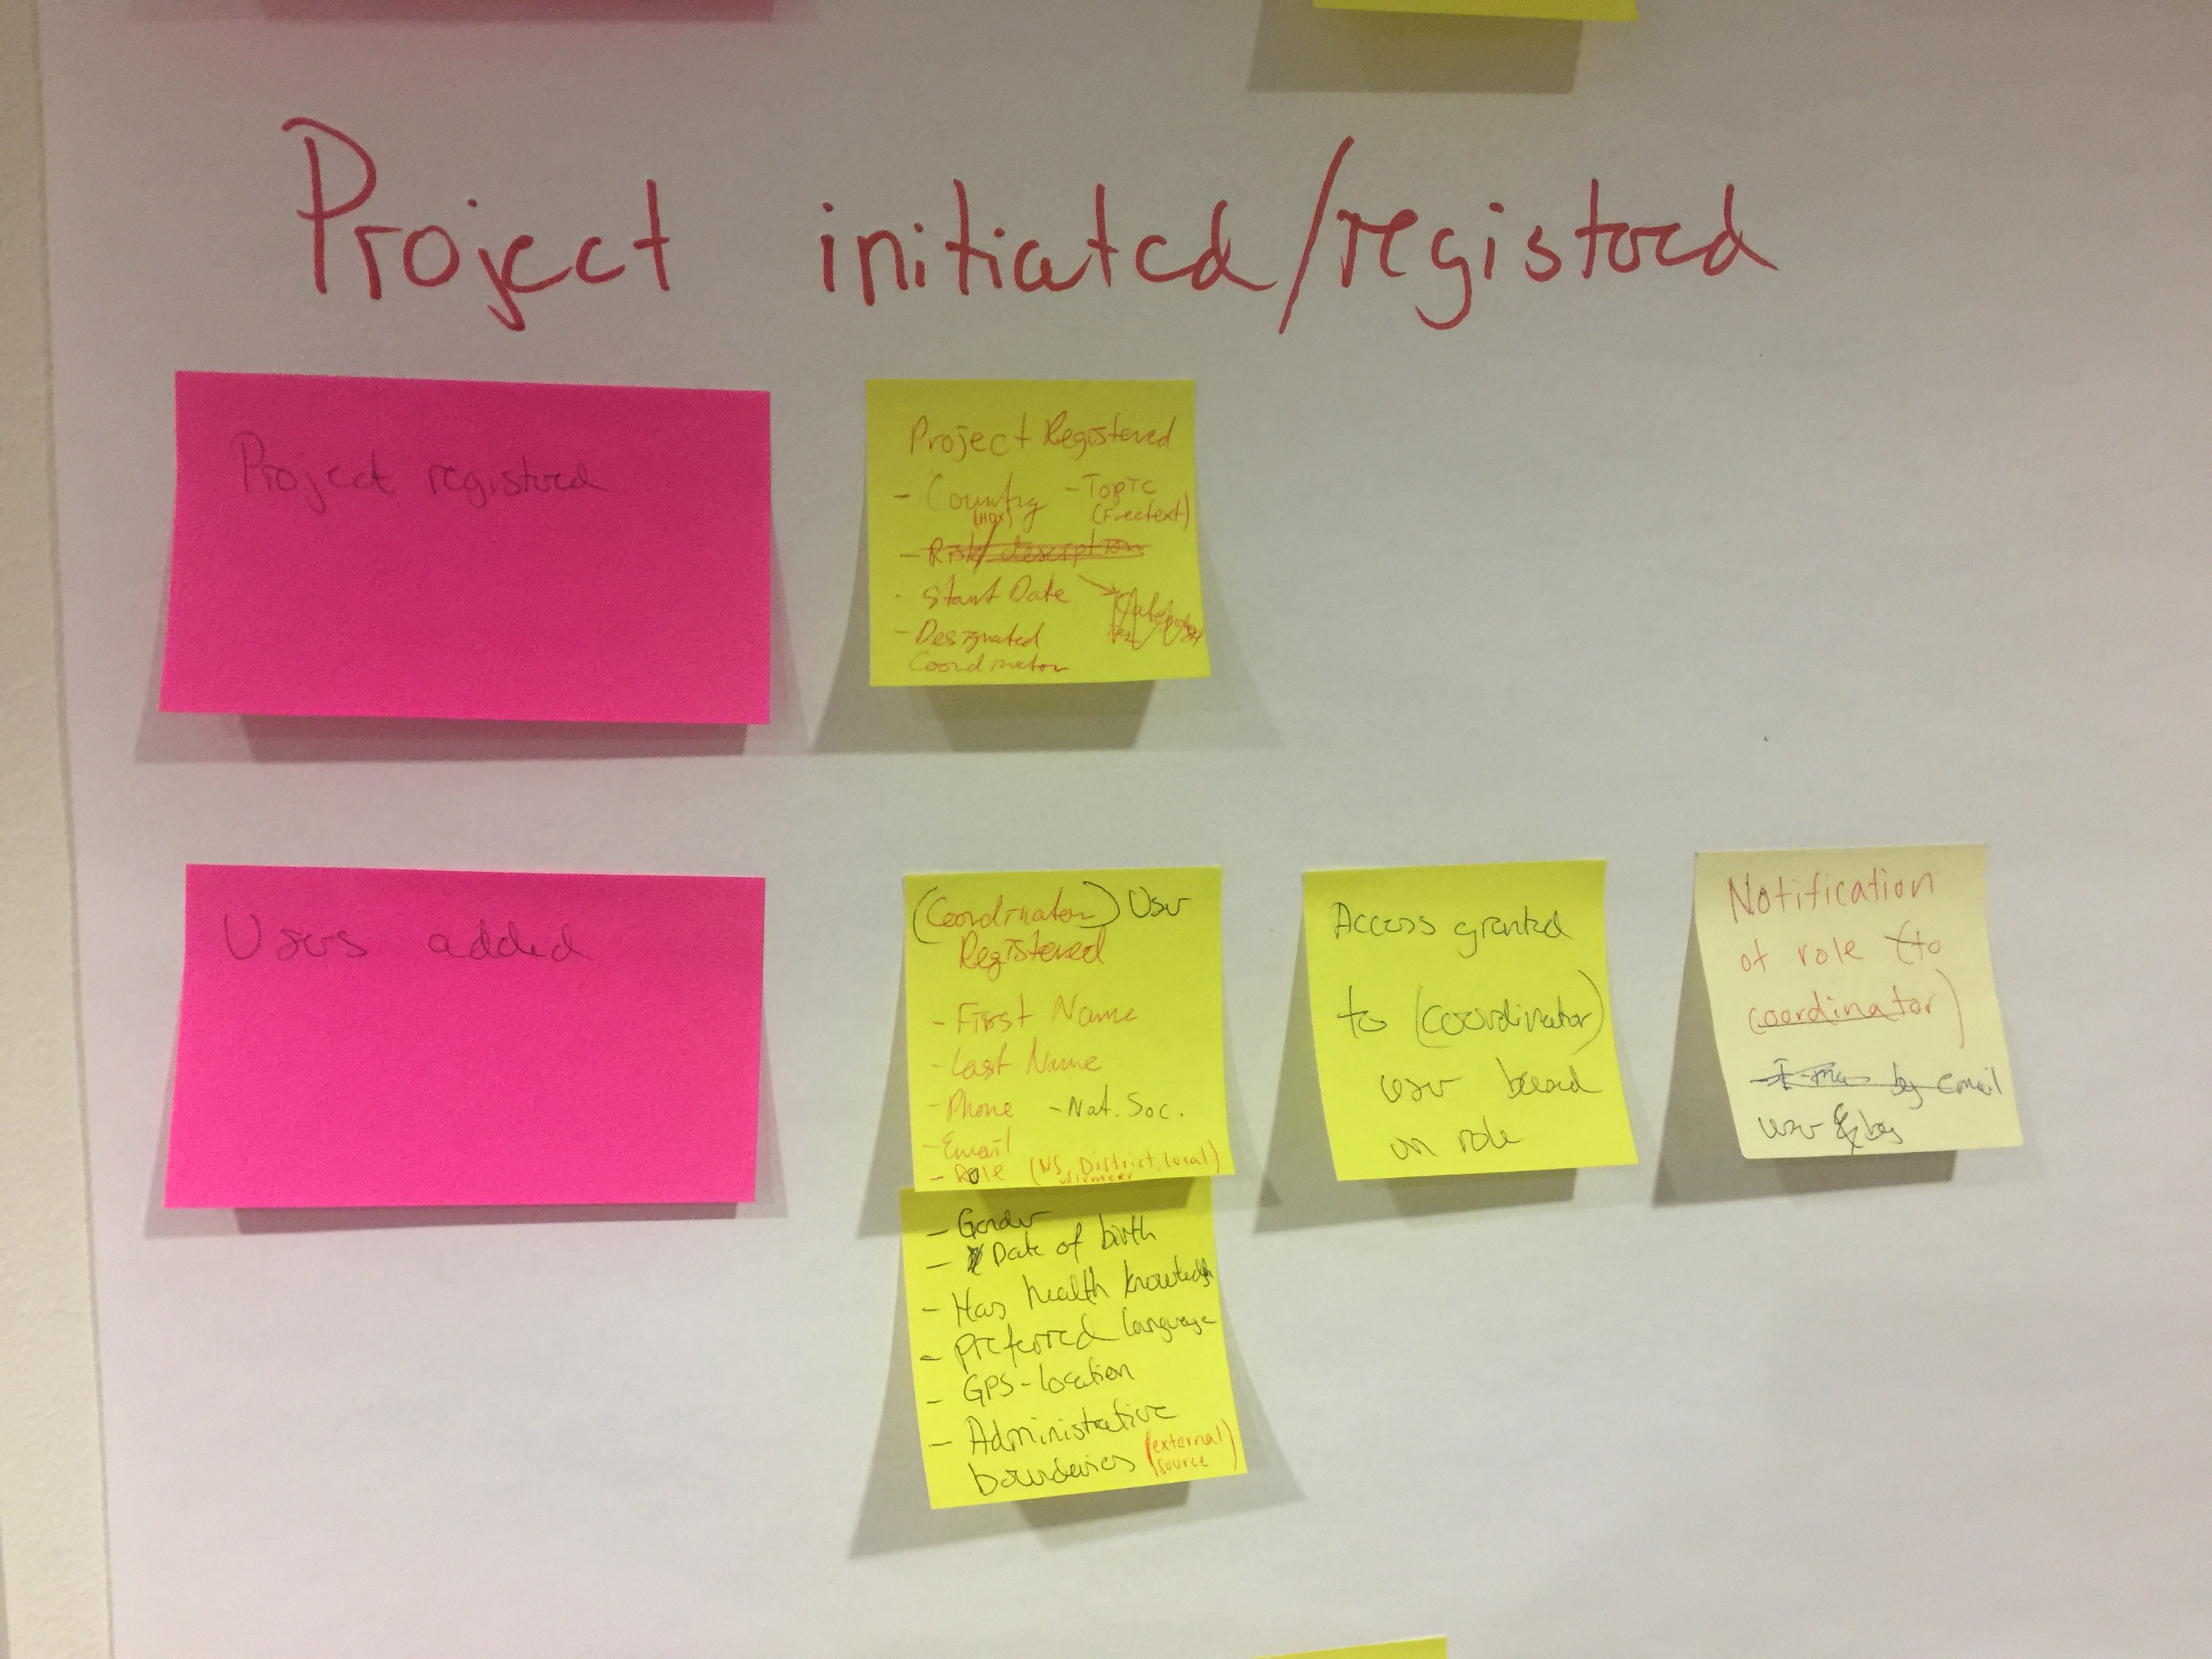 Project initiated/registered
Project registered
Project Registered
- Country - Topic
(HDX) (Freetext)
- Risk/description
- Start Date
- Designated
Coordinator
Users added
(Coordinator) User
Registered
- First Name
- Last Name
- Phone - Nat. Soc.
- Email
- Role (NS, District, local)
volunteer
- Gender
- Date of birth
- Has health knowledge
- preferred language
- GPS-location
- Administrative
boundaries (external
source)
Access granted
to (coordinator)
user based
on role
Notification
of role (to
coordinator)
by email
user